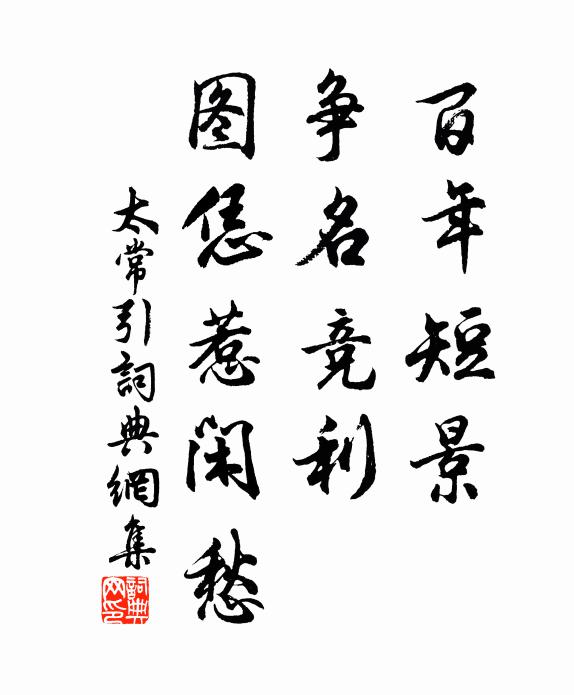 百年短景
争名竞利
图恁惹闲愁
太常引詞典網集
詞典网印